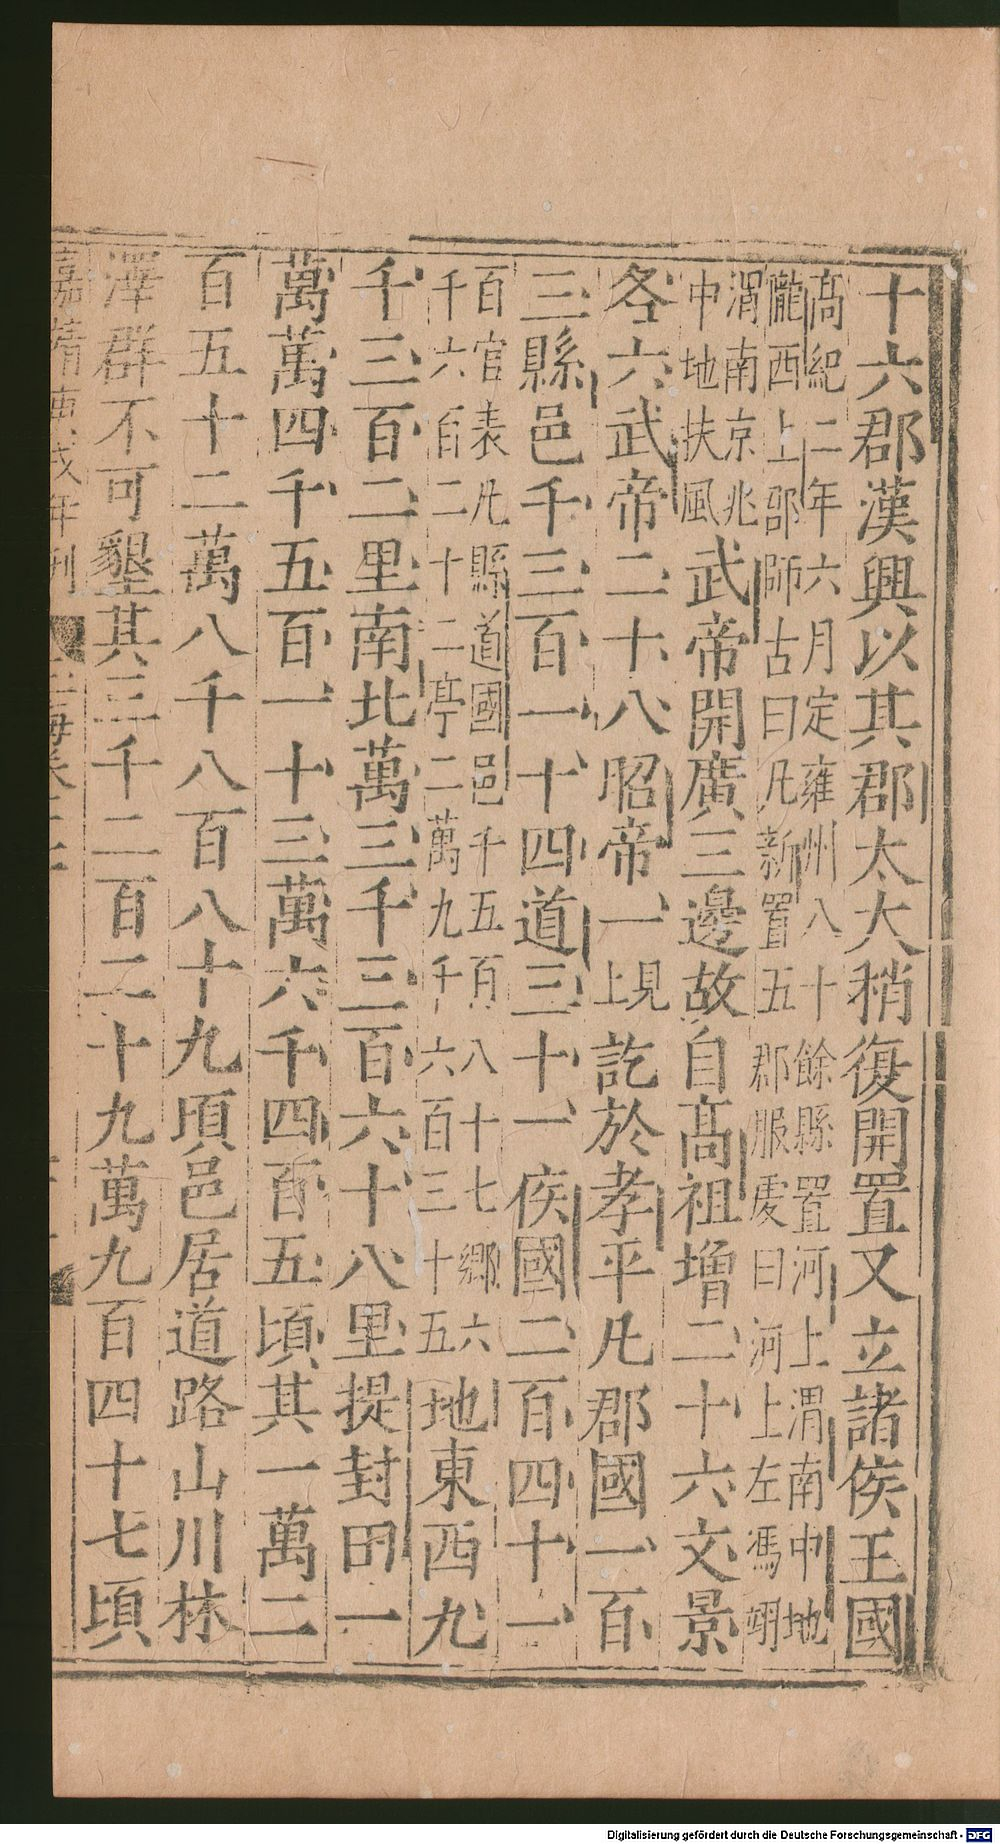 十六郡漢興以其郡太大稍復開置又立諸侯王國
高紀二年六月定雍州八十餘縣置河上渭南中地
隴西上郡師古曰凡新置五郡服虔曰河上左馮翊
渭南京兆
中地扶風
武帝開廣三邊故自高祖增二十六文景
各六武帝二十八昭帝一
見
上
訖於孝平凡郡國一百
三縣邑千三百一十四道三十一侯國二百四十一
百官表凡縣道國邑千五百八十七鄉六
千六百二十二亭二萬九千六百三十五
地東西九
千三百二里南北萬三千三百六十八里提封田一
萬萬四千五百一十三萬六千四百五頃其一萬二
百五十二萬八千八百八十九頃邑居道路山川林
澤群不可墾其三千二百二十九萬九百四十七頃
嘉靖庚戌年刊
Digitalisierung gefördert durch die Deutsche Forschungsgemeinschaft - DFG